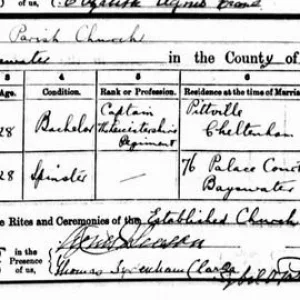 Parish Church
in the County of
3 4 5 6
Age. Condition. Rank or Profession. Residence at the time of Marri
28 Bachelor Captain Leicestershire Regiment Pittville Cheltenham
28 Spinster — 76 Palace Court Bayswater
e Rites and Ceremonies of the Established Church
in the Presence of us,
Thomas Sydenham Clarke